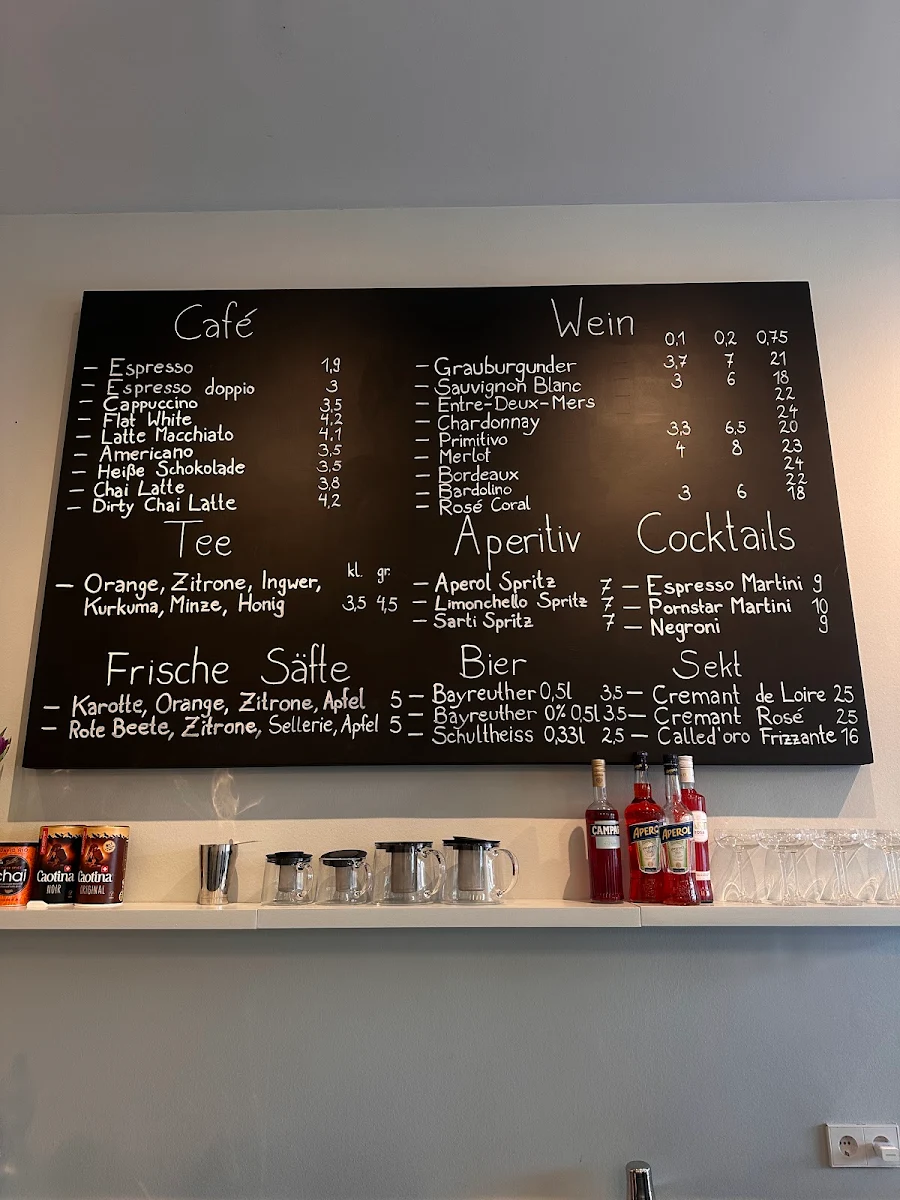 Café
– Espresso 1,9
– Espresso doppio 3
– Cappuccino 3,5
– Flat White 4,2
– Latte Macchiato 4,1
– Americano 3,5
– Heiße Schokolade 3,5
– Chai Latte 3,8
– Dirty Chai Latte 4,2
Tee
kl. gr.
– Orange, Zitrone, Ingwer,
Kurkuma, Minze, Honig 3,5 4,5
Frische Säfte
– Karotte, Orange, Zitrone, Apfel 5
– Rote Beete, Zitrone, Sellerie, Apfel 5
Wein
0,1 0,2 0,75
– Grauburgunder 3,7 7 21
– Sauvignon Blanc 3 6 18
– Entre-Deux-Mers 22
– Chardonnay 24
– Primitivo 3,3 6,5 20
– Merlot 4 8 23
– Bordeaux 24
– Bardolino 22
– Rosé Coral 3 6 18
Aperitiv
– Aperol Spritz 7
– Limonchello Spritz 7
– Sarti Spritz 7
Cocktails
– Espresso Martini 9
– Pornstar Martini 10
– Negroni 9
Bier
– Bayreuther 0,5l 3,5
– Bayreuther 0% 0,5l 3,5
– Schultheiss 0,33l 2,5
Sekt
– Cremant de Loire 25
– Cremant Rosé 25
– Called'oro Frizzante 16
chai
Caotina
NOIR
Caotina
ORIGINAL
CAMPA
APEROL
APEROL